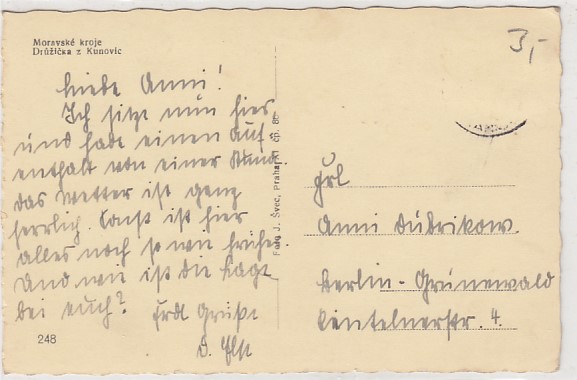 Moravské kroje
Družička z Kunovic
3,-
Liebe Anni!
Ich sitze nun hier
und habe einen Auf
enthalt von einer Stund.
das Wetter ist ganz
herrlich. Sonst ist hier
alles noch so wie früher.
Und wie ist die Lage
bei euch? Erdl Grüße
248
Foto J. Švec, Praha XI čp. 80
Frl
Anni Dubrikow.
Berlin-Grunewald
str. 4.